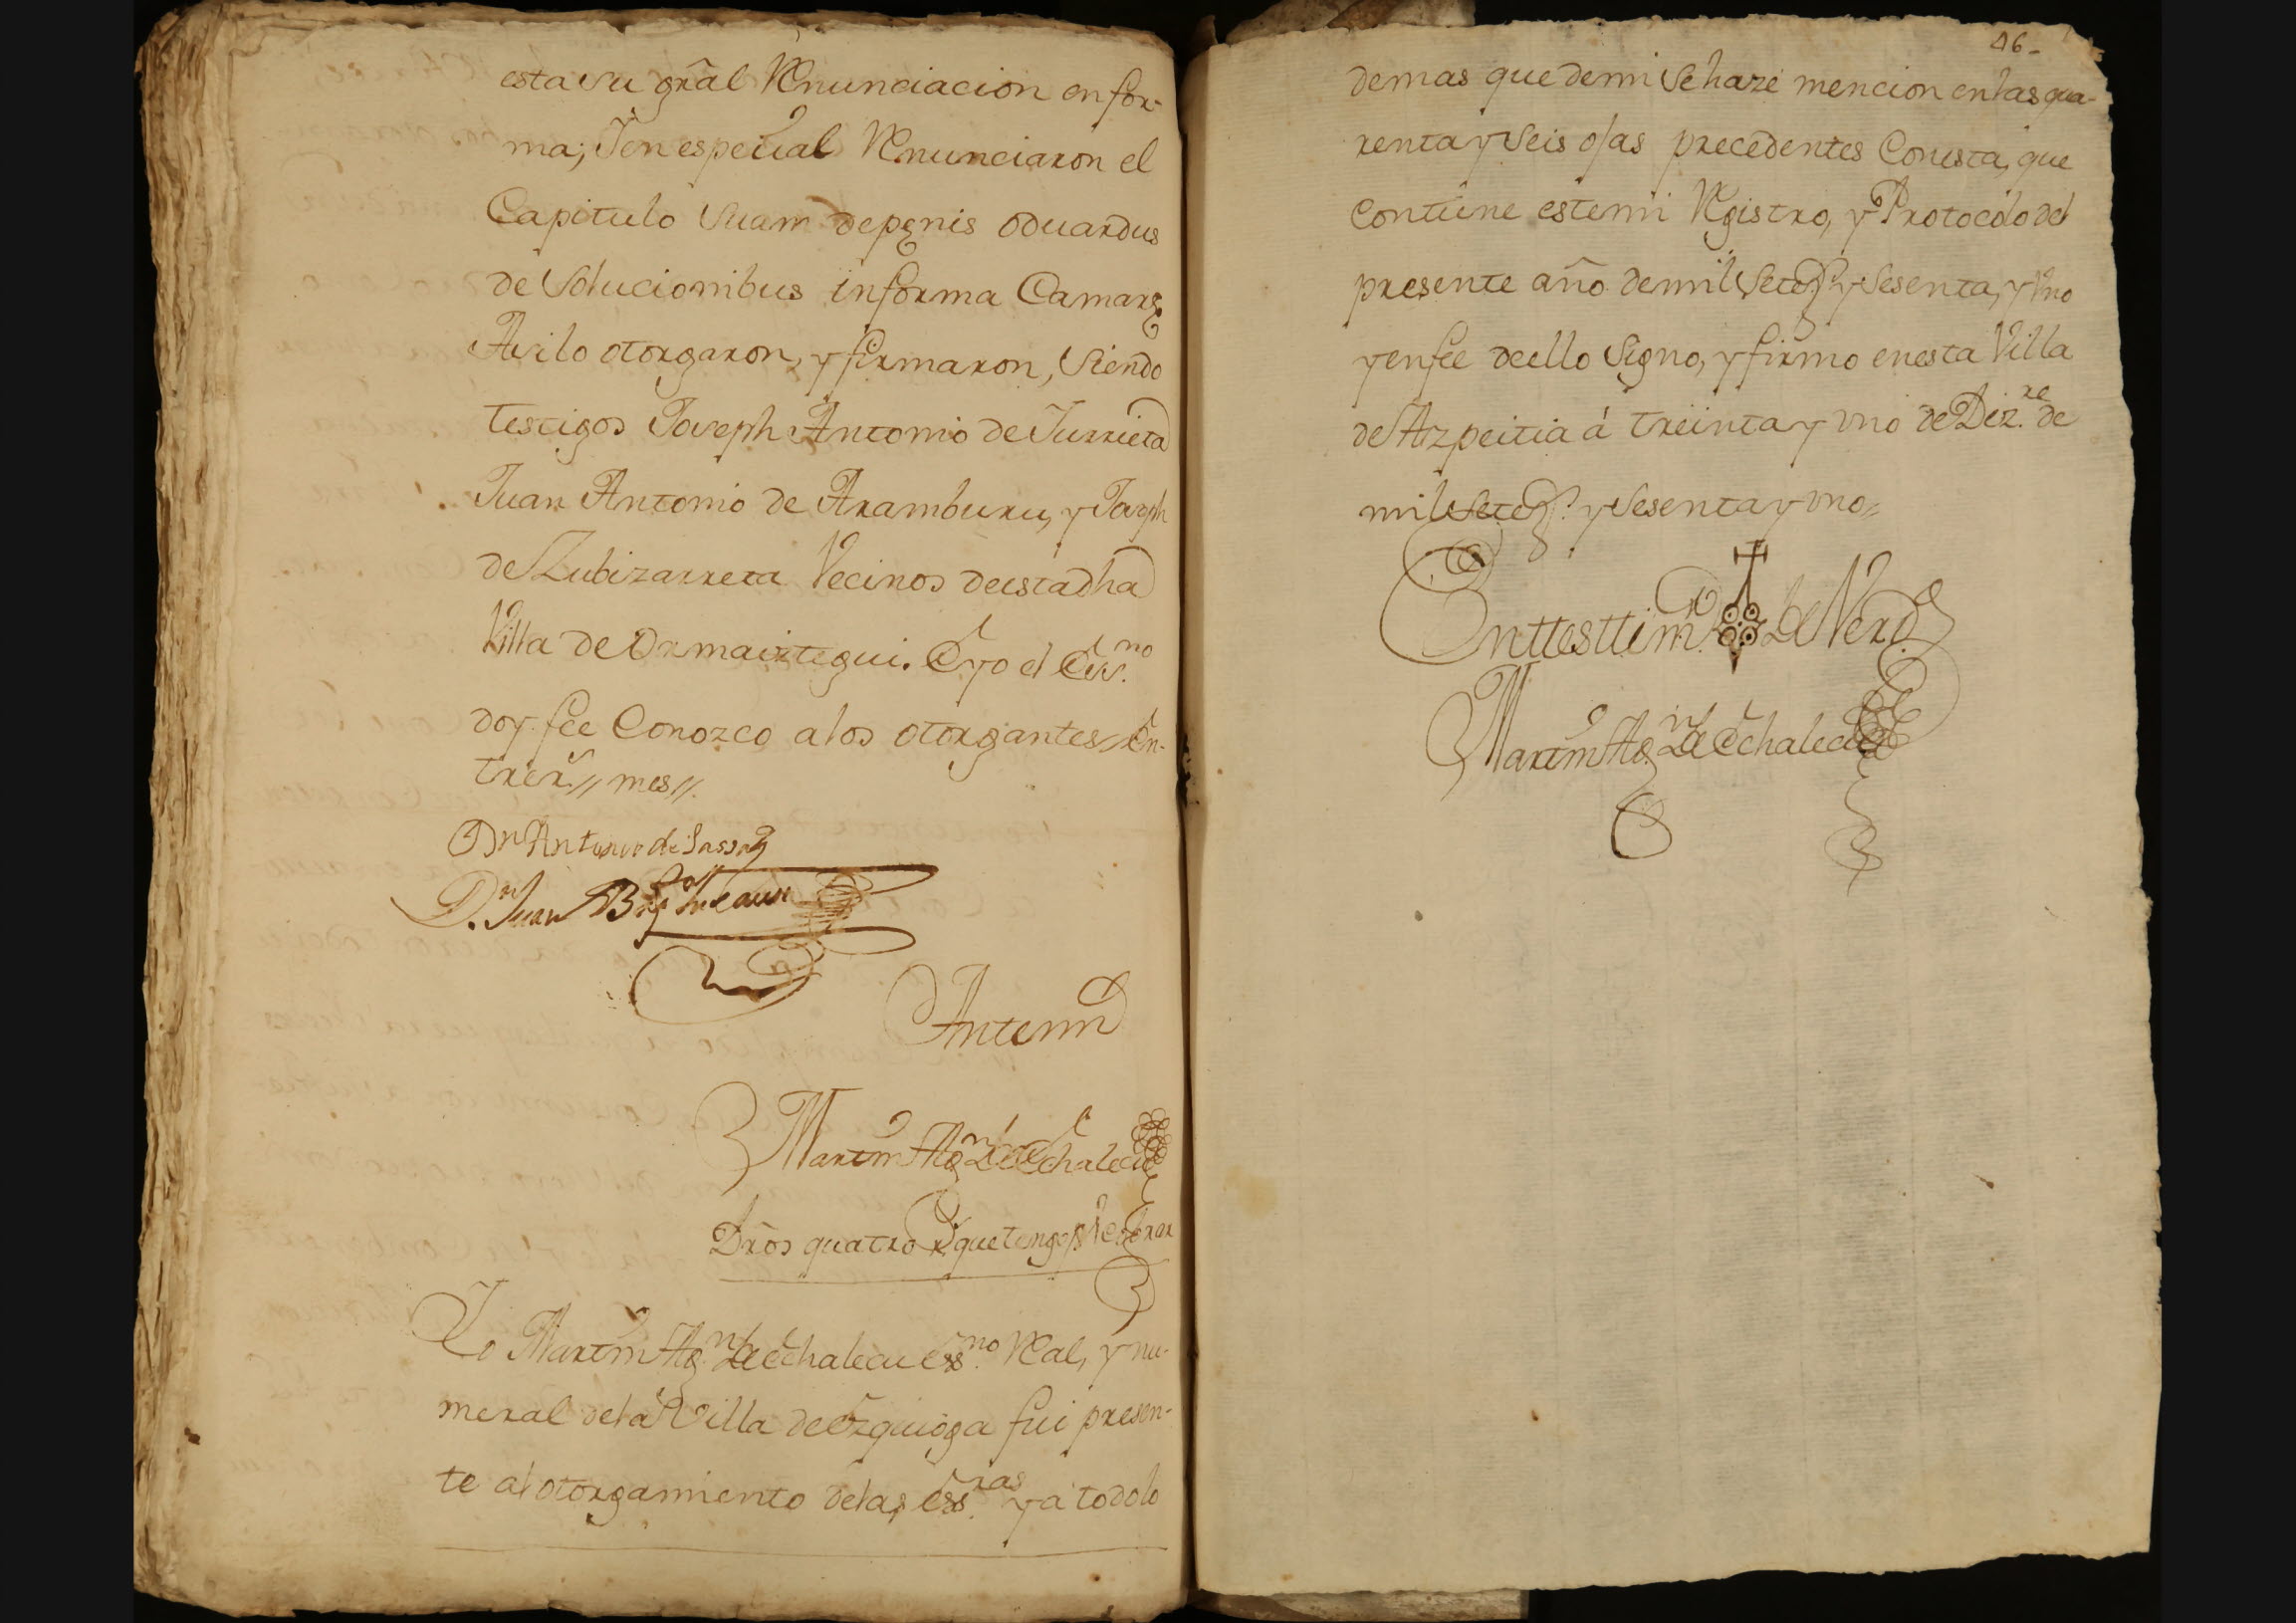 esta su grâl Renunciacion en for-
ma; Y en especial Renunciaron el
Capitulo Suam depenis oduardus
de Solucionibus in forma Camarę
Asilo otorgaron, y firmaron, Siendo
testigos Joseph Antonio de Iurrieta
Juan Antonio de Aramburu, y Joseph
de Zubizarreta Vecinos de esta dha
Villa de Ormaiztegui. E yo el Ess.no
doy fee Conozco a los otorgantes // En-
trer.s // mes //.
Dn Antonio de Sassa
D.n Juan
Antemi
Martin Ag.n de Echalecu
Drôs quatro rs. que tengo p.r Cobrar
Yo Martin Ag.n de Echalecu ess.no Real, y nu-
meral de la Villa de Ezquioga fui presen-
te al otorgamiento de las ess.ras y a todo lo
46-
demas que demi se haze mencion en las qua-
renta y seis ojas precedentes Con esta, que
Contiene este mi Registro, y Protocolo del
presente año de mil Setez.s y Sesenta, y Uno
y en fee de ello Signo, y firmo en esta Villa
de Azpeitia á treinta y uno de Diz.re de
mil Setez.s y Sesenta y uno //
En ttesttim.o de Verd.
Martin Ag.n de Echalecu